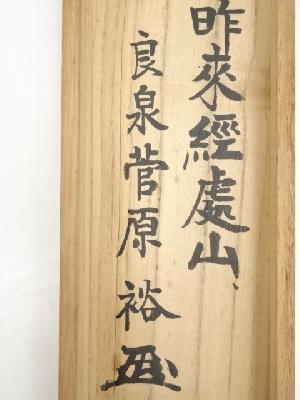 昨來經處山
良泉菅原裕